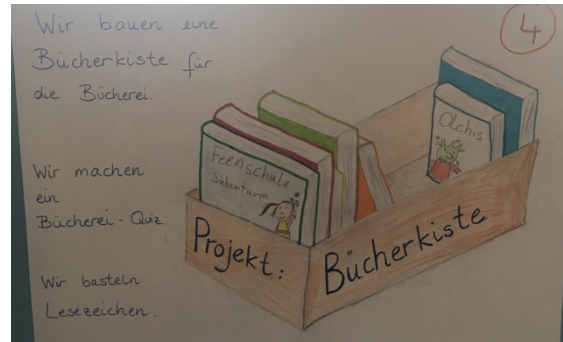 Wir bauen eine
Bücherkiste für
die Bücherei.
Wir machen
ein
Bücherei-Quiz.
Wir basteln
Lesezeichen.
4
Feenschule
Siebenturm
Olchis
Projekt:
Bücherkiste